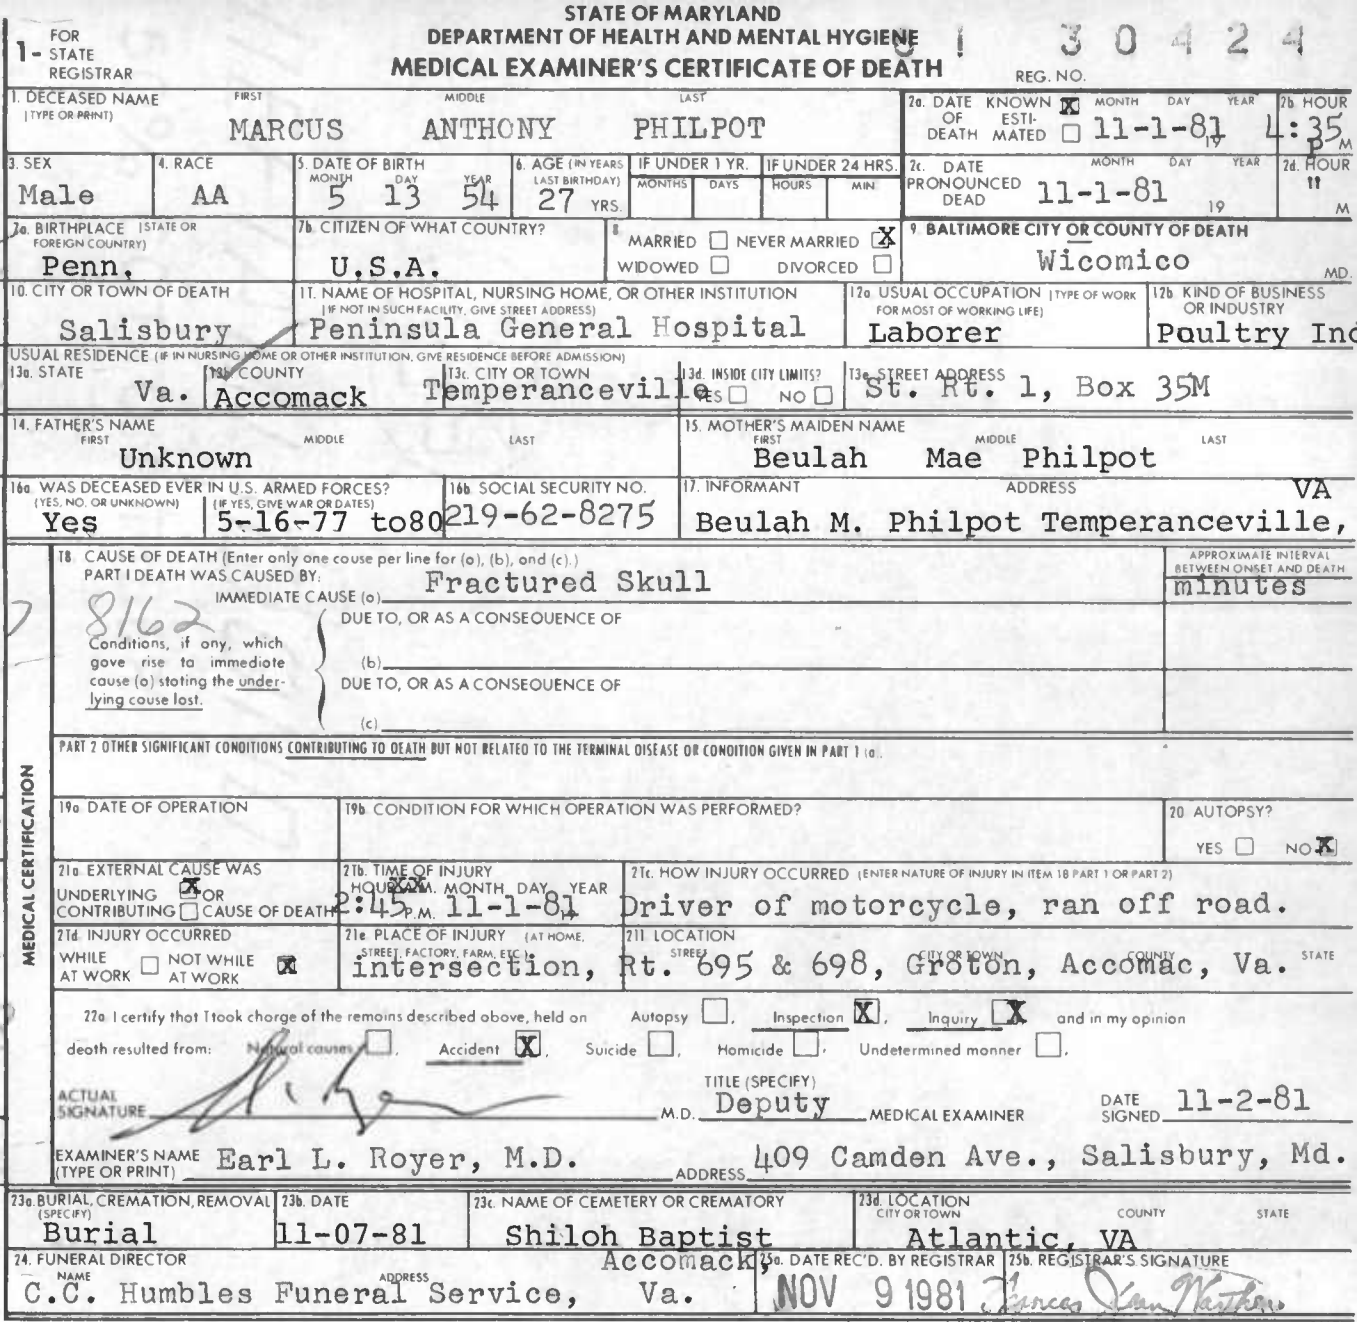 STATE OF MARYLAND
DEPARTMENT OF HEALTH AND MENTAL HYGIENE
MEDICAL EXAMINER'S CERTIFICATE OF DEATH
1- FOR STATE REGISTRAR
81 30424
REG. NO.
1. DECEASED NAME (TYPE OR PRINT) FIRST MIDDLE LAST
MARCUS ANTHONY PHILPOT
2a. DATE OF DEATH KNOWN X ESTIMATED MONTH DAY YEAR 11-1-81 19
2b. HOUR 4:35 P M
3. SEX Male
4. RACE AA
5. DATE OF BIRTH MONTH DAY YEAR 5 13 54
6. AGE (IN YEARS LAST BIRTHDAY) 27 YRS.
IF UNDER 1 YR. MONTHS DAYS
IF UNDER 24 HRS. HOURS MIN
2c. DATE PRONOUNCED DEAD MONTH DAY YEAR 11-1-81 19
2d. HOUR " M
7a. BIRTHPLACE (STATE OR FOREIGN COUNTRY) Penn.
7b. CITIZEN OF WHAT COUNTRY? U.S.A.
8 MARRIED NEVER MARRIED X
WIDOWED DIVORCED
9. BALTIMORE CITY OR COUNTY OF DEATH Wicomico MD.
10. CITY OR TOWN OF DEATH Salisbury
11. NAME OF HOSPITAL, NURSING HOME, OR OTHER INSTITUTION (IF NOT IN SUCH FACILITY, GIVE STREET ADDRESS) Peninsula General Hospital
12a. USUAL OCCUPATION (TYPE OF WORK FOR MOST OF WORKING LIFE) Laborer
12b. KIND OF BUSINESS OR INDUSTRY Poultry Ind
USUAL RESIDENCE (IF IN NURSING HOME OR OTHER INSTITUTION, GIVE RESIDENCE BEFORE ADMISSION)
13a. STATE Va.
13b. COUNTY Accomack
13c. CITY OR TOWN Temperanceville
13d. INSIDE CITY LIMITS? YES NO
13e. STREET ADDRESS St. Rt. 1, Box 35M
14. FATHER'S NAME FIRST MIDDLE LAST
Unknown
15. MOTHER'S MAIDEN NAME FIRST MIDDLE LAST
Beulah Mae Philpot
16a. WAS DECEASED EVER IN U.S. ARMED FORCES? (YES, NO, OR UNKNOWN) (IF YES, GIVE WAR OR DATES)
Yes 5-16-77 to80
16b. SOCIAL SECURITY NO. 219-62-8275
17. INFORMANT ADDRESS VA
Beulah M. Philpot Temperanceville,
18. CAUSE OF DEATH (Enter only one cause per line for (a), (b), and (c).)
PART I DEATH WAS CAUSED BY:
IMMEDIATE CAUSE (a) Fractured Skull
APPROXIMATE INTERVAL BETWEEN ONSET AND DEATH
minutes
8162
DUE TO, OR AS A CONSEQUENCE OF
Conditions, if any, which gave rise to immediate cause (a) stating the underlying cause last.
(b)
DUE TO, OR AS A CONSEQUENCE OF
(c)
PART 2 OTHER SIGNIFICANT CONDITIONS CONTRIBUTING TO DEATH BUT NOT RELATED TO THE TERMINAL DISEASE OR CONDITION GIVEN IN PART 1 (a).
MEDICAL CERTIFICATION
19a. DATE OF OPERATION
19b. CONDITION FOR WHICH OPERATION WAS PERFORMED?
20 AUTOPSY? YES NO X
21a. EXTERNAL CAUSE WAS
UNDERLYING X OR
CONTRIBUTING CAUSE OF DEATH
21b. TIME OF INJURY HOUR A.M. MONTH DAY YEAR
2:45 P.M. 11-1-81
21c. HOW INJURY OCCURRED (ENTER NATURE OF INJURY IN ITEM 18 PART 1 OR PART 2)
Driver of motorcycle, ran off road.
21d. INJURY OCCURRED
WHILE AT WORK NOT WHILE AT WORK X
21e. PLACE OF INJURY (AT HOME, STREET, FACTORY, FARM, ETC.)
intersection,
21f. LOCATION STREET CITY OR TOWN COUNTY STATE
Rt. 695 & 698, Groton, Accomac, Va.
22a. I certify that I took charge of the remains described above, held on Autopsy , Inspection X, Inquiry X and in my opinion
death resulted from: Natural causes , Accident X, Suicide , Homicide , Undetermined manner .
ACTUAL SIGNATURE M.D.
TITLE (SPECIFY) Deputy MEDICAL EXAMINER
DATE SIGNED 11-2-81
EXAMINER'S NAME (TYPE OR PRINT) Earl L. Royer, M.D.
ADDRESS 409 Camden Ave., Salisbury, Md.
23a. BURIAL, CREMATION, REMOVAL (SPECIFY) Burial
23b. DATE 11-07-81
23c. NAME OF CEMETERY OR CREMATORY Shiloh Baptist
23d. LOCATION CITY OR TOWN COUNTY STATE
Atlantic, VA
24. FUNERAL DIRECTOR NAME ADDRESS
Accomack,
C.C. Humbles Funeral Service, Va.
25a. DATE REC'D. BY REGISTRAR NOV 9 1981
25b. REGISTRAR'S SIGNATURE Frances Jean Warthen